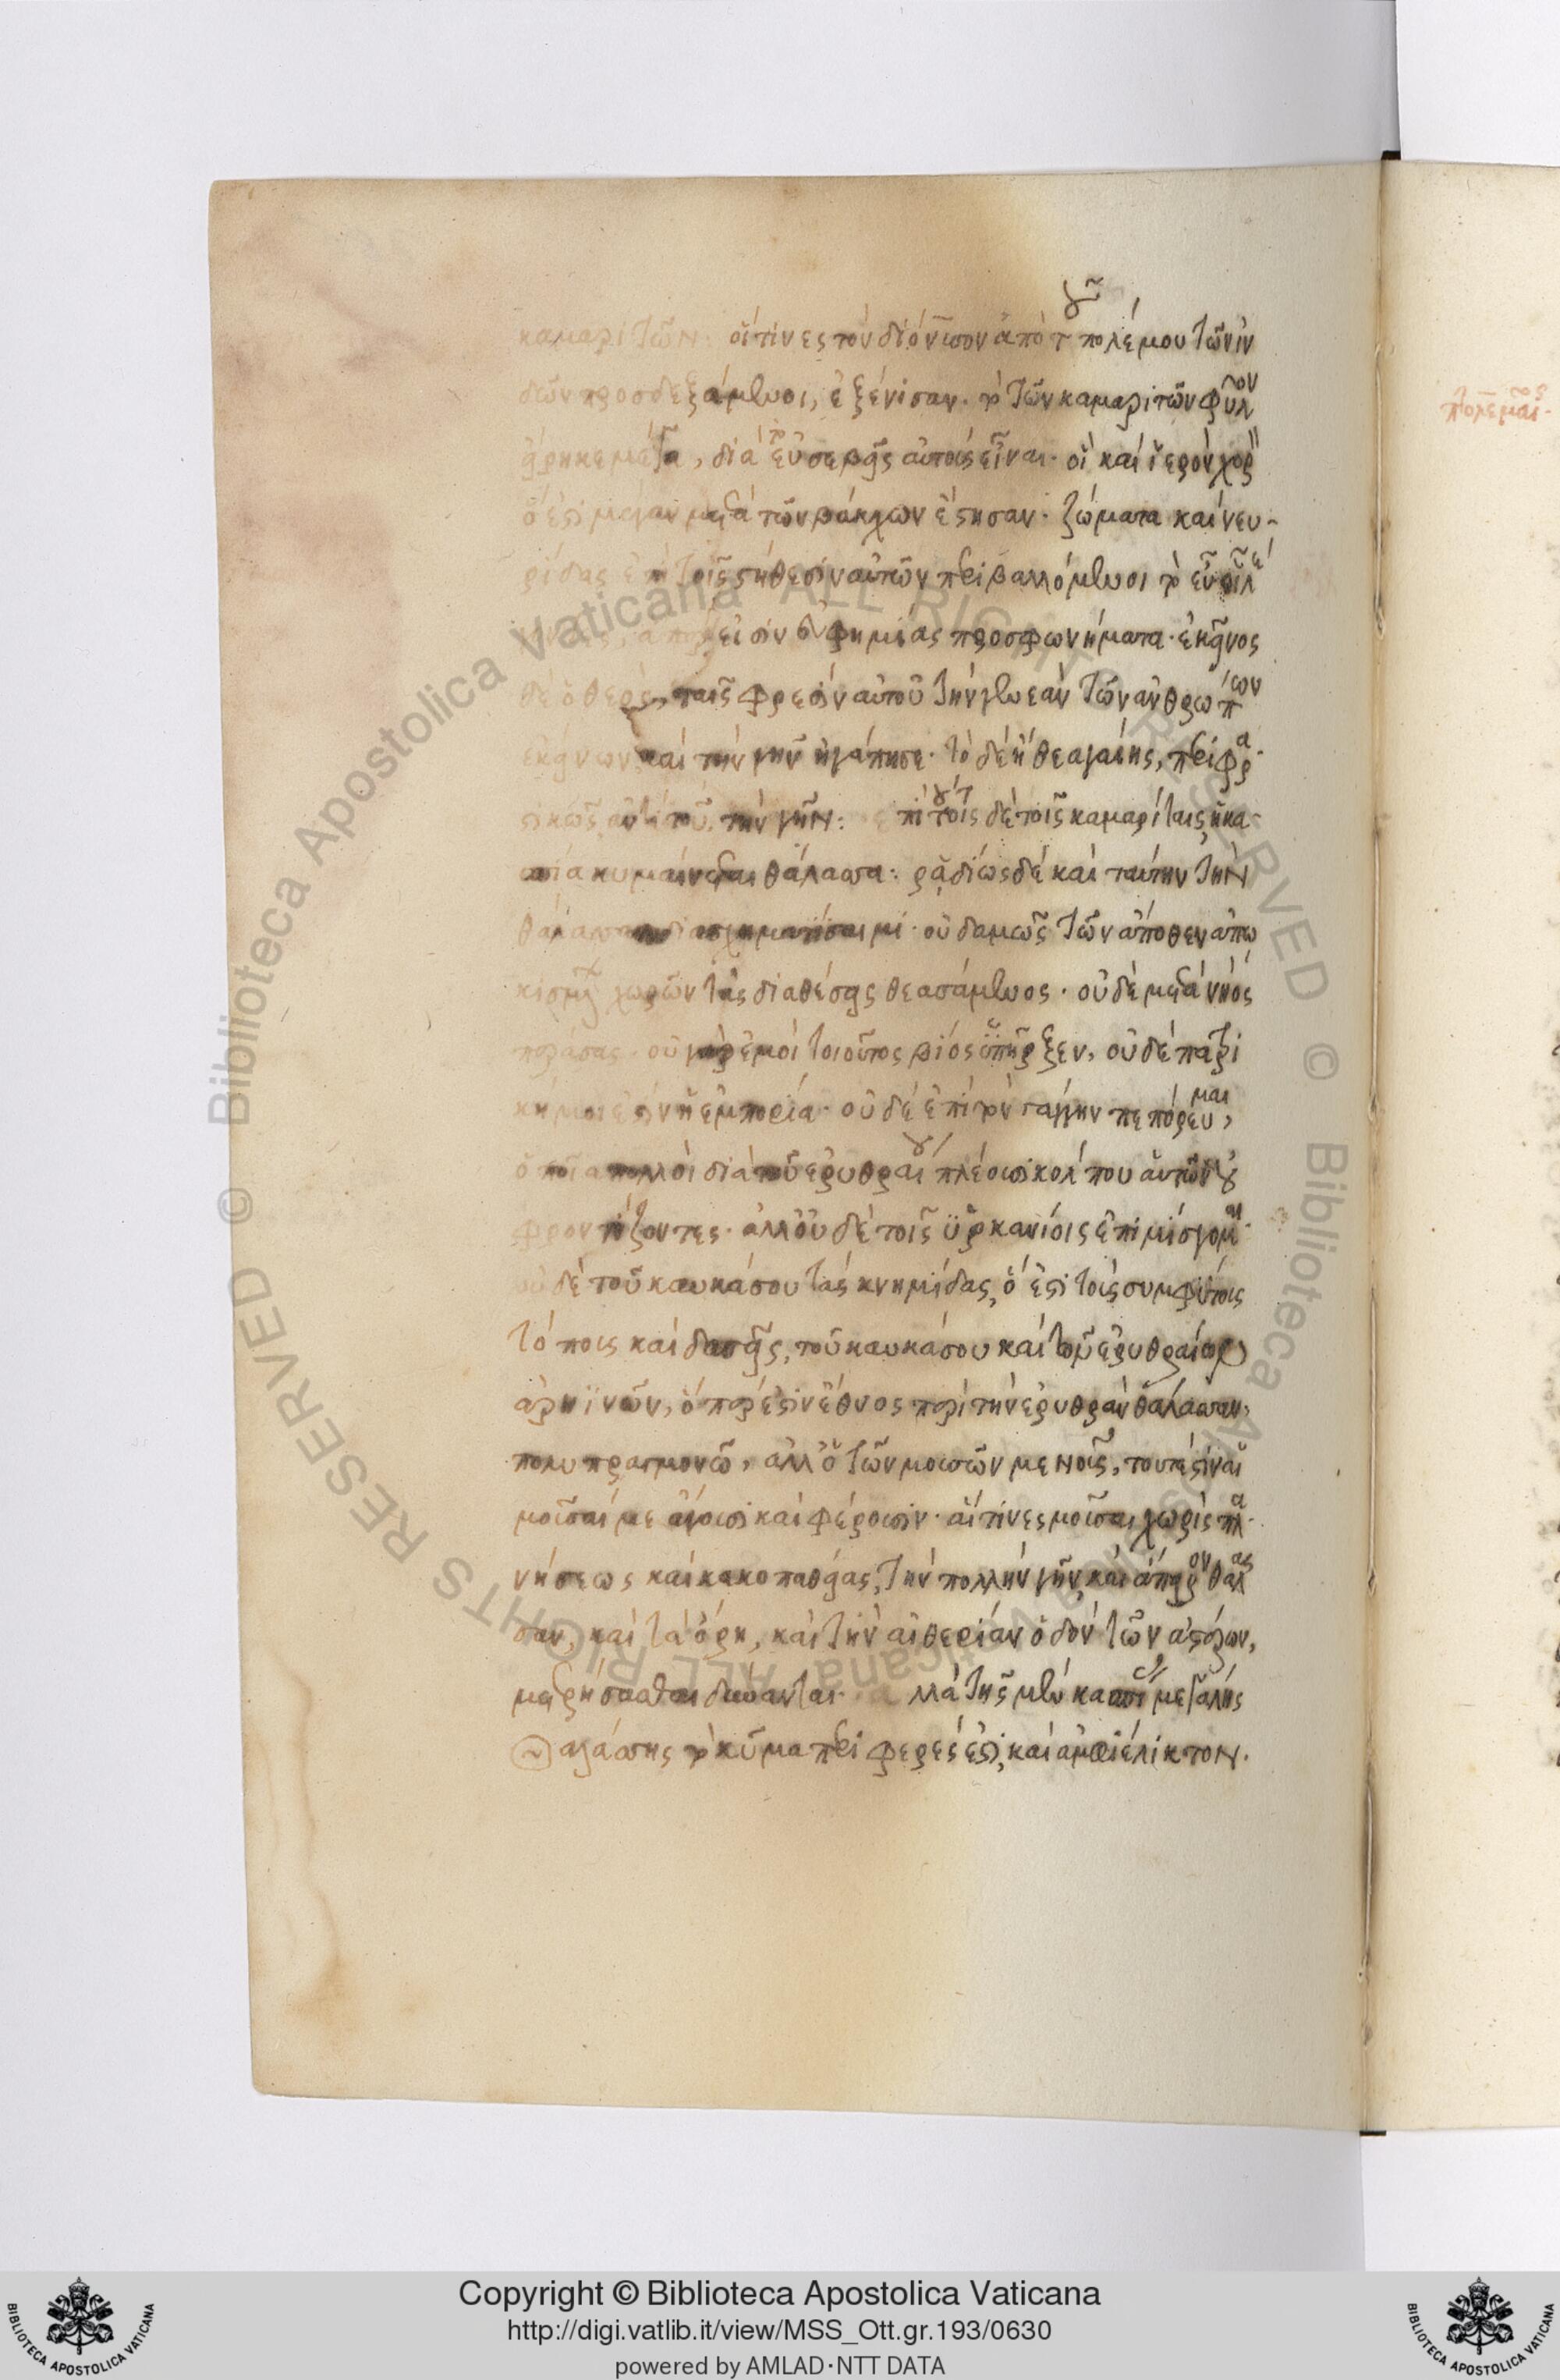 καμαριτῶν· οἵτινες τὸν διόνυσον ἀπὸ τοῦ πολέμου τῶν ἰν
δῶν προσδεξάμενοι, ἐξένισαν· τὸ τῶν καμαριτῶν φῦλον
εἴρηκε μέγα, διὰ τὸ εὐσεβεῖς αὐτοὺς εἶναι· οἳ καὶ ἱερὸν χορ
μετὰ τῶν βάκχων ἔστησαν· ζώματα καὶ νευ-
ρίδας ἐπὶ τοῖς στήθεσιν αὐτῶν περιβαλλόμενοι τὸ
εὐφημίας προσφωνήματα· ἐκεῖνος
δὲ ὁ θεὸς, ταῖς φρεσὶν αὐτοῦ τὴν γενεὰν τῶν ἀνθρώπων
ἐκείνων καὶ τὴν γῆν ἠγάπησε· τὸ δὲ ἤθεα γαίης, περιφρα
στικῶς ἀντὶ τοῦ, τὴν γῆν: ἐπὶ τούτοις δὲ τοῖς καμαρίταις, ἡ κα-
σπία κυμαίνεται θάλασσα: ῥαδίως δὲ καὶ ταύτην τὴν
θάλασσαν οὐδαμῶς τῶν ἄποθεν ἀπω
κισμένων χωρῶν τὰς διαθέσεις θεασάμενος· οὐδὲ μετὰ νηὸς
περάσας· οὐ γὰρ ἐμοὶ τοιοῦτος βίος ὑπῆρξεν, οὐδὲ πατρι
κή μοι ἐστὶν ἡ ἐμπορία· οὐδὲ ἐπὶ τὸν γάγγην πεπόρευμαι,
ὁποῖα πολλοὶ διὰ τοῦ ἐρυθραίου πλέουσι κόλπου αὐτῶν οὐ
φροντίζοντες· ἀλλ' οὐδὲ τοῖς ὑρκανίοις ἐπιμίσγομαι·
οὐδὲ τοῦ καυκάσου τὰς κνημίδας, ὅ ἐστι τοὺς συμφύτους
τόπους καὶ δασεῖς, τοῦ καυκάσου καὶ τῶν ἐρυθραίων
ἀρηϊνῶν, ὅπερ ἐστὶν ἔθνος περὶ τὴν ἐρυθρὰν θάλασσαν,
πολυπραγμονῶ, ἀλλ' ὁ τῶν μουσῶν με νοῦς, τουτέστιν αἱ
μοῦσαί με ἄγουσι καὶ φέρουσιν· αἵτινες μοῦσαι χωρὶς πλα-
νήσεως καὶ κακοπαθείας, τὴν πολλὴν γῆν, καὶ ἄπειρον θάλασ
σαν, καὶ τὰ ὄρη, καὶ τὴν αἰθερίαν ὁδὸν τῶν ἀστέρων,
μετρήσασθαι δύνανται· ἀλλὰ τῆς μὲν κασπίας μεγάλης
θαλάσσης τὸ κῦμα περιφερές ἐστι, καὶ ἀμφιέλικτον.
Copyright © Biblioteca Apostolica Vaticana
http://digi.vatlib.it/view/MSS_Ott.gr.193/0630
powered by AMLAD·NTT DATA
BIBLIOTECA APOSTOLICA VATICANA
BIBLIOTECA APOSTOLICA VATICANA